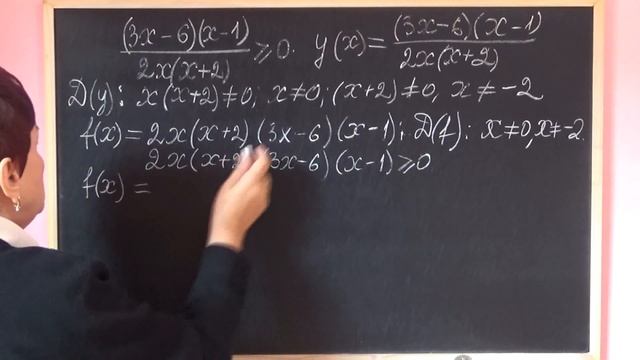 (3x-6)(x-1)/2x(x+2) ⩾ 0. y(x) = (3x-6)(x-1)/2x(x+2)
D(y): x(x+2)≠0; x≠0; (x+2)≠0, x≠-2
f(x) = 2x(x+2)(3x-6)(x-1); D(f): x≠0, x≠-2.
2x(x+2)(3x-6)(x-1)⩾0
f(x) =